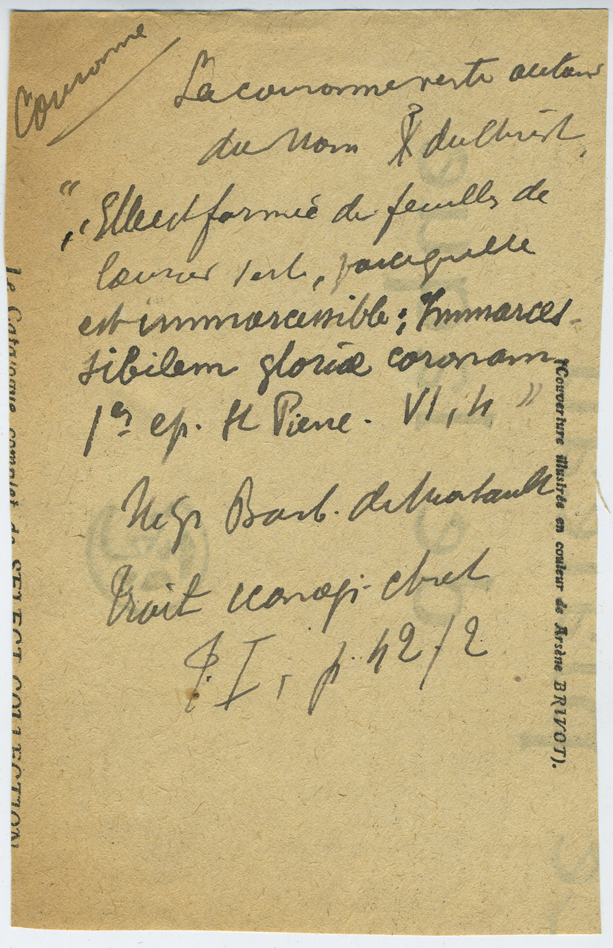 Couronne
La couronne verte autour
du Nom ☧ du Christ.
"Elle est formée de feuilles de
laurier vert, parcequ'elle
est immarcessible : Immarces-
sibilem gloriæ coronam
1re ep. St Pierre. VI, 4"
Mgr Barb. de Montault
Trait iconogr. chret
T. I, p. 42/2
(Couverture illustrée en couleur de Arsène BRIVOT).
Le Catalogue complet de SELECT-COLLECTION